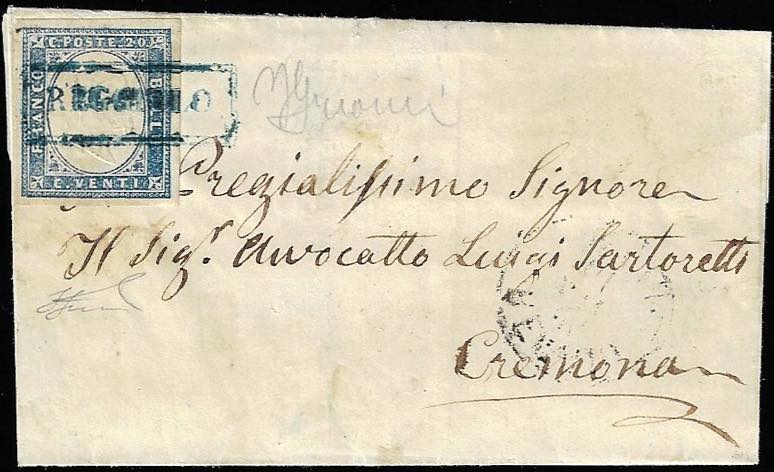 C. POSTE 20
FRANCO
BOLLO
C. VENTI
REGGIOLO
Pregialissimo Signore
Il Sigr. Avvocatto Luigi Sartoretti
Cremona